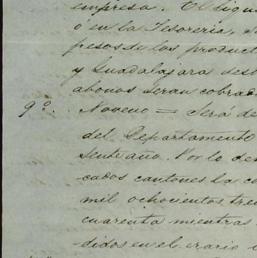 empresa. El liqui
ó en la Tesorería, s
pesos de los product
y Guadalajara des
abonos serán cobrad
9º. Noveno = Será de
del Departamento
sente año. Por lo de
cados cantones la co
mil ochocientos tre
cuarenta mientras
didos en el erario